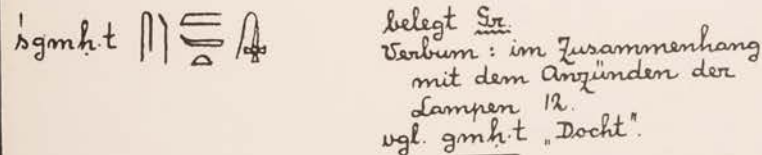 śgmḥ.t
belegt Gr.
Verbum: im Zusammenhang
mit dem Anzünden der
Lampen 12.
vgl. gmḥ.t „Docht".